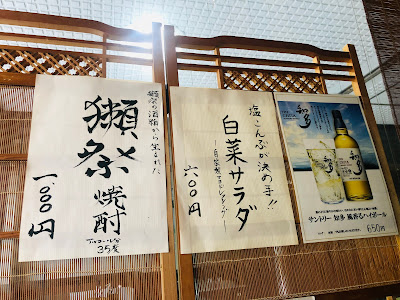 獺祭の酒粕から生まれた
獺祭
焼酎
アルコール分
35度
一、000円
塩こんぶが決め手!!
白菜サラダ
六00円
知多
サントリー 知多 風香るハイボール
650円